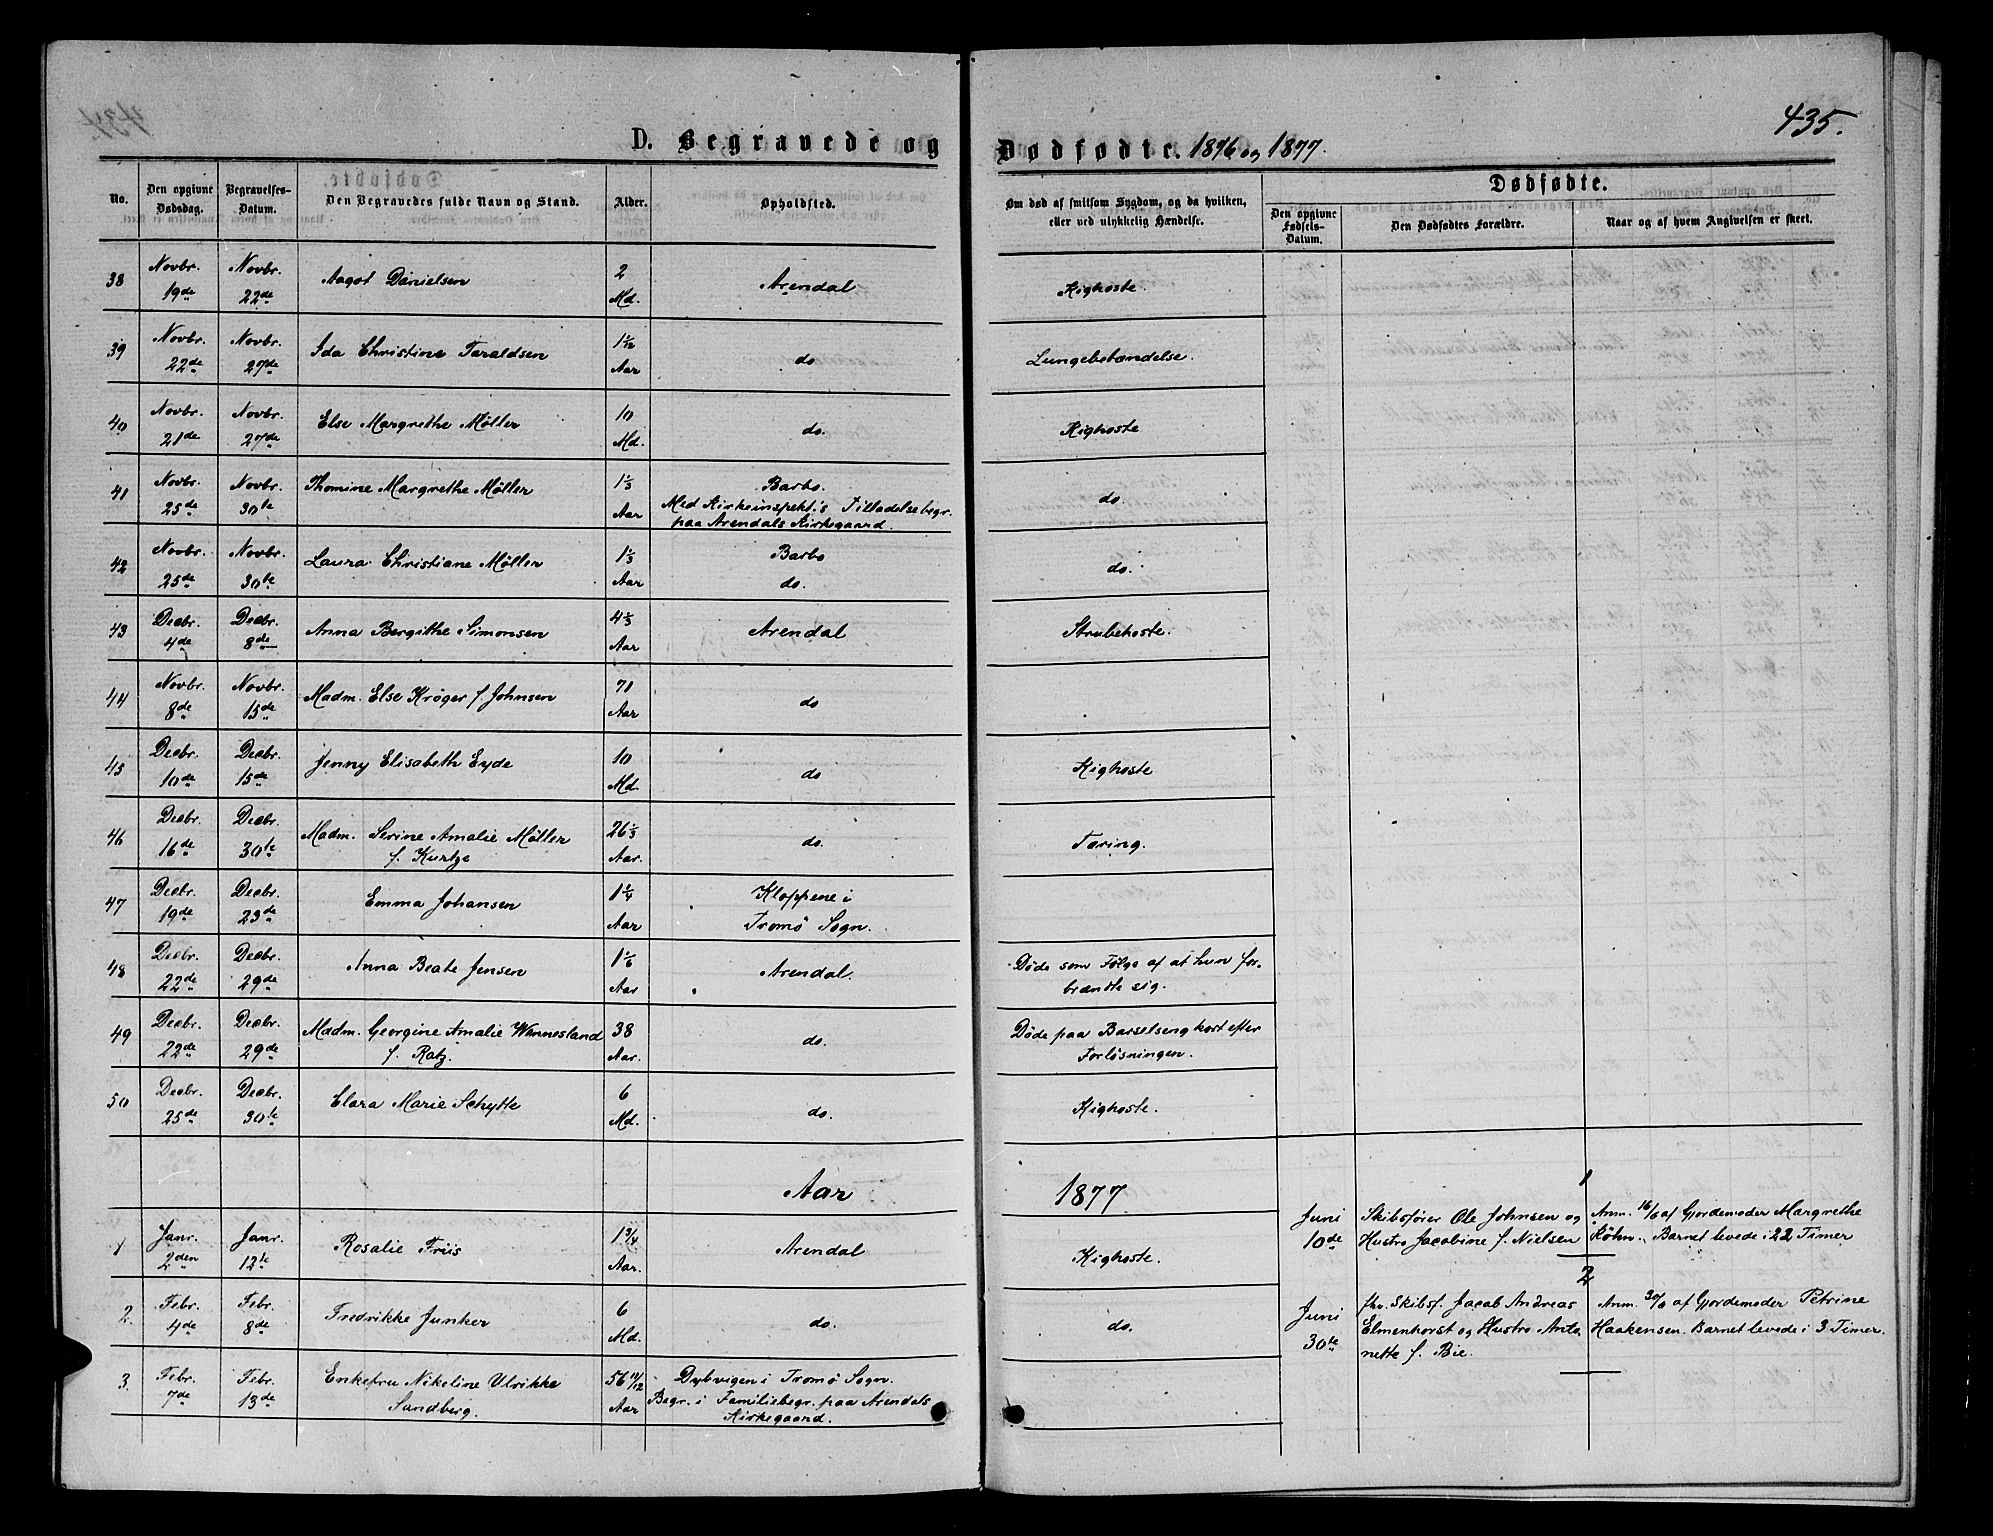 435.
D. Begravede og Dødfødte. 1876 og 1877.
No. Den opgivne Dødsdag. Begravelses-Datum. Den Begravedes fulde Navn og Stand. Alder. Opholdsted. Om død af smitsom Sygdom, og da hvilken, eller ved ulykkelig Hændelse.
Dødfødte.
Den opgivne Fødsels-Datum. Den Dødfødtes Forældre. Naar og af hvem Angivelsen er skeet.
38 Novbr. 19de Novbr. 22de Aagot Danielsen 2 Md. Arendal Kighoste.
39 Novbr. 22de Novbr. 27de Ida Christine Taraldsen 1 1/12 Aar do Lungebetændelse.
40 Novbr. 21de Novbr. 27de Else Margrethe Møller 10 Md. do. Kighoste
41 Novbr. 25de Novbr. 30te Thomine Margrethe Møller 1 1/3 Aar Barbo. do.
Med Kirkeinspekt:s Tilladelse begr.
paa Arendals Kirkegaard.
42 Novbr. 25de Novbr. 30te Laura Christiane Møller 1 1/3 Aar Barbo do. do.
43 Decbr. 4de Decbr. 8de Anna Bergithe Simonsen 4 1/3 Aar Arendal Strubehoste.
44 Novbr. 8de Novbr. 15de Madm. Else Krøger f. Johnsen 71 Aar do
45 Decbr. 10de Decbr. 15de Jenny Elisabeth Eyde 10 Md. do Kighoste
46 Decbr. 16de Decbr. 30te Madm. Serine Amalie Møller 26 1/3 Aar. do. Tæring.
f. Kurtze
47 Decbr. 19de Decbr. 23de Emma Johansen 1 1/4 Aar Kloppene i
Tromø Sogn.
48 Decbr. 22de Decbr. 29de Anna Beate Jensen 1 1/6 Aar Arendal. Døde som Følge af at hun for-
brændte sig.
49 Decbr. 22de Decbr. 29de Madm. Georgine Amalie Wennesland 38 Aar. do. Døde paa Barselseng kort efter
f. Ratz. Forløsningen.
50 Decbr. 25de Decbr. 30te Clara Marie Schytte 6 Md. do. Kighoste.
Aar 1877
1 Janr. 2den Janr. 12te Rosalie Friis 1 3/4 Aar. Arendal Kighoste.
2. Febr. 4de Febr. 8de Fredrikke Junker 6 Md. do. do.
3. Febr. 7de Febr. 13de Enkefru Nikeline Ulrikke 56 11/12 Aar Dybvigen i Tromø Sogn.
Sandberg. Begr. i Familiebegr. paa Arendals
Kirkegaard.
1
Juni 10de Skibsfører Ole Johnsen og Anm. 16/6 af Gjordemoder Margrethe
Hustro Jacobine f. Nielsen Røhn. Barnet levede i 22 Timer
2
Juni 30te fhv. Skibsf. Jacob Andreas Anm. 30/6 af Gjordemoder Petrine
Elmenhorst og Hustro Anto- Haakensen. Barnet levede i 3 Timer.
nette f. Bie.